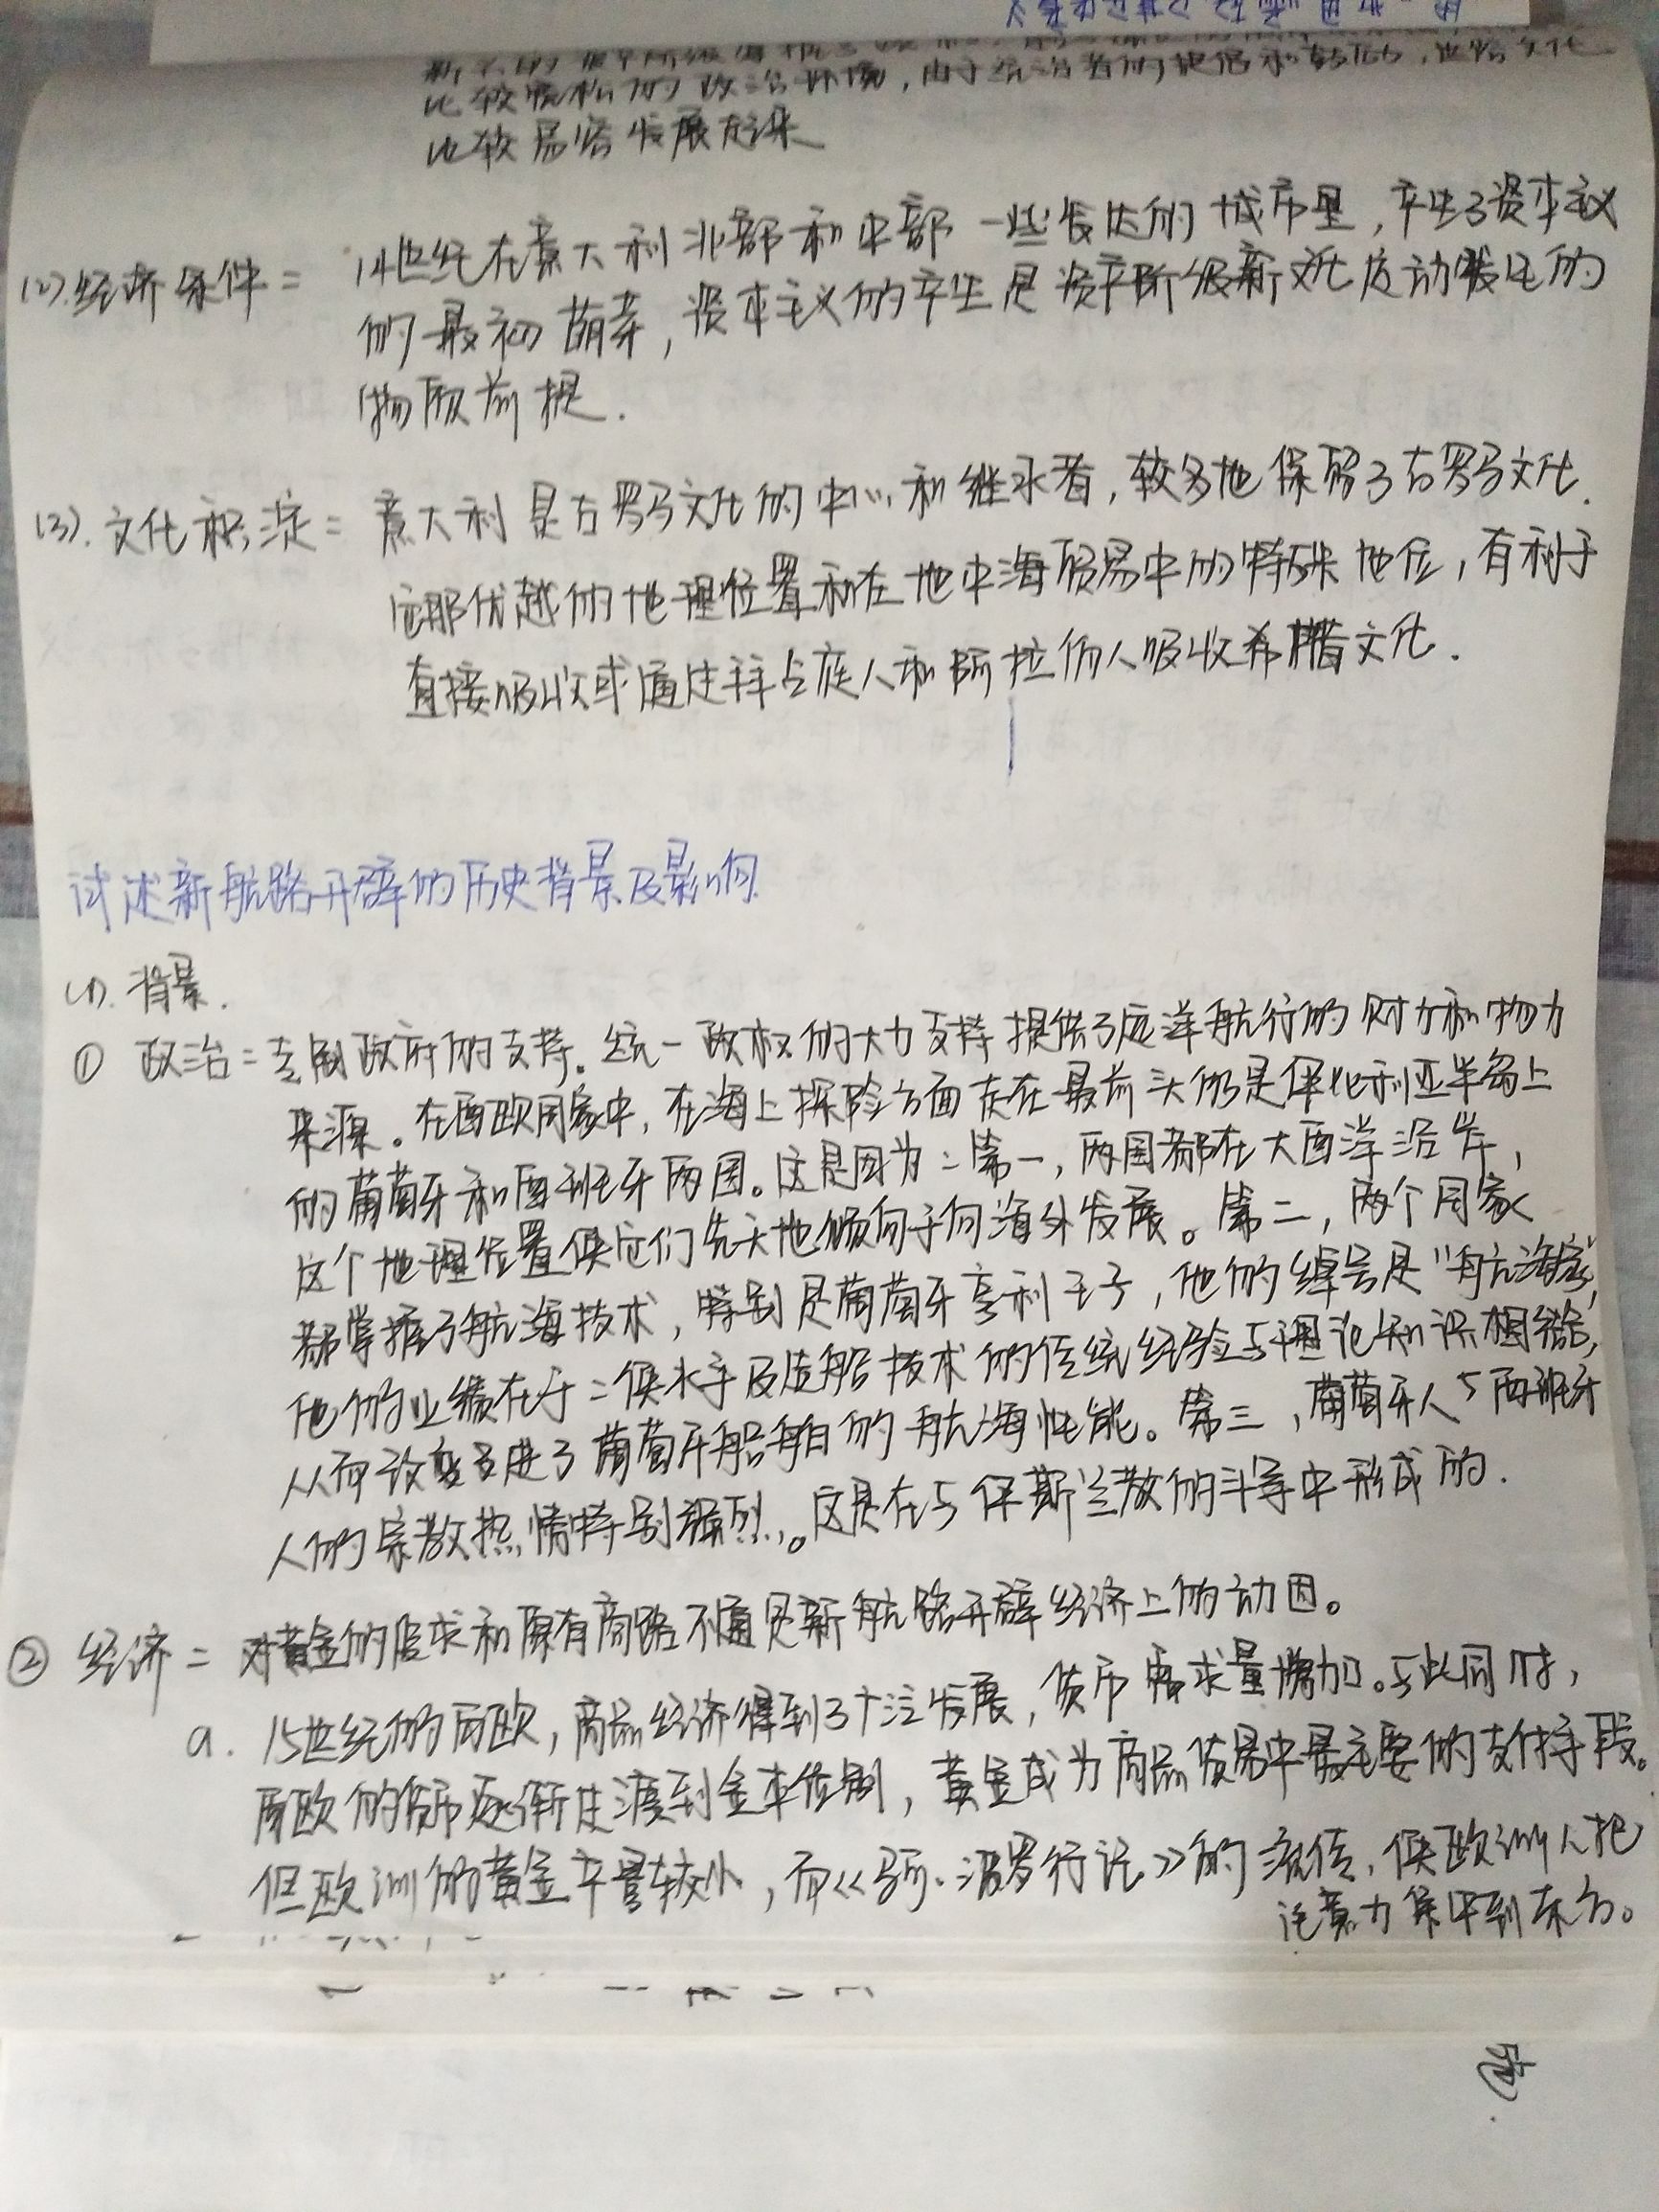 比较宽松的政治环境,由于统治者的提倡和
比较容易发展起来
(2).经济条件: 14世纪在意大利北部和中部一些发达的城市里,产生了资本主义
的最初萌芽,资本主义的产生是资产阶级新文化运动发生的
物质前提.
(3).文化积淀: 意大利是古罗马文化的中心和继承者,较多地保留了古罗马文化.
它那优越的地理位置和在地中海贸易中的特殊地位,有利于
直接吸收或通过拜占庭人和阿拉伯人吸收希腊文化.
试述新航路开辟的历史背景及影响
(1).背景.
① 政治:专制政府的支持。统一政权的大力支持提供了远洋航行的财力和物力
来源。在西欧国家中,在海上探险方面走在最前头的是伊比利亚半岛上
的葡萄牙和西班牙两国。这是因为:第一,两国都在大西洋沿岸,
这个地理位置使它们先天地倾向于向海外发展。第二,两个国家
都掌握了航海技术,特别是葡萄牙亨利王子,他的绰号是"航海家",
他的业绩在于:使水手及造船技术的传统经验与理论知识相结合,
从而改变改进了葡萄牙船舶的航海性能。第三,葡萄牙人与西班牙
人的宗教热情特别强烈。这是在与伊斯兰教的斗争中形成的.
② 经济:对黄金的追求和原有商路不通是新航路开辟经济上的动因。
a. 15世纪的西欧,商品经济得到了广泛发展,货币需求量增加。与此同时,
西欧的货币逐渐过渡到金本位制,黄金成为商品贸易中最主要的支付手段。
但欧洲的黄金产量较小,而《马可·波罗行记》的流传,使欧洲人把
注意力集中到东方。